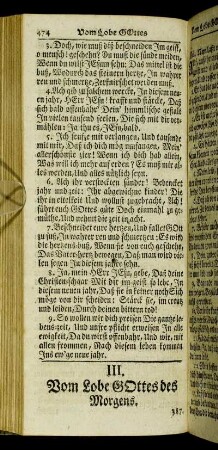 474 Vom Lobe GOttes
3. Doch, wie muß diß beschneiden Im geist,
o mensch! geschehn? Du must die sünde meiden,
Wenn du wilst JEsum sehn: Das mittel ist die
buß, Wodurch das steinern hertze, In wahrer
reu und schmertze, Zerknirschet werden muß.
4. Ach gib zu solchem wercke, In diesem neuen
jahr, HErr JEsu! krafft und stärcke, Daß
sich bald offenbahr Dein' himmlische gestalt
In vielen tausend seelen, Die sich mit dir ver-
mählen: Ja thu es, JEsu, bald.
5. Ich seufze mit verlangen, Und tausende
mit mir, Daß ich dich mög umfangen, Mein'
allerschönste zier! Wenn ich dich hab allein,
Was will ich mehr auf erden? Es muß mir al-
les werden, Und alles nützlich seyn.
6. Ach ihr verstockten sünder! Bedencket
jahr und zeit; Ihr abgewichne kinder! Die ihr
in eitelkeit Und wollust zugebracht, Ach!
führt euch GOttes güte Doch einmahl zu ge-
müthe, Und nehmt die zeit in acht.
7. Beschneidet eure hertzen, Und fallet GOtt
zu fuß, In wahrer reu und schmertzen: Es muß
die hertzens-buß, Wenn sie von euch geschehn,
Das Vater-hertz bewegen, Daß man wird vie-
len segen In diesem jahre sehn.
8. Ja, mein HErr JEsu, gebe, Daß deine
Christenschaar Mit dir im geist so lebe, In
diesem neuen jahr, Daß sie in keiner noth Sich
möge von dir scheiden: Stärck sie, im creutz und
leiden, Durch deinen bittern tod!
9. So wollen wir dich preisen Die gantze le-
bens-zeit, Und unsre pflicht erweisen In alle
ewigkeit, Da du wirst offenbahr, Und wir, mit
allen frommen, Nach diesem leben kommen
Ins ew'ge neue jahr.
III.
Vom Lobe GOttes des
Morgens.
387.